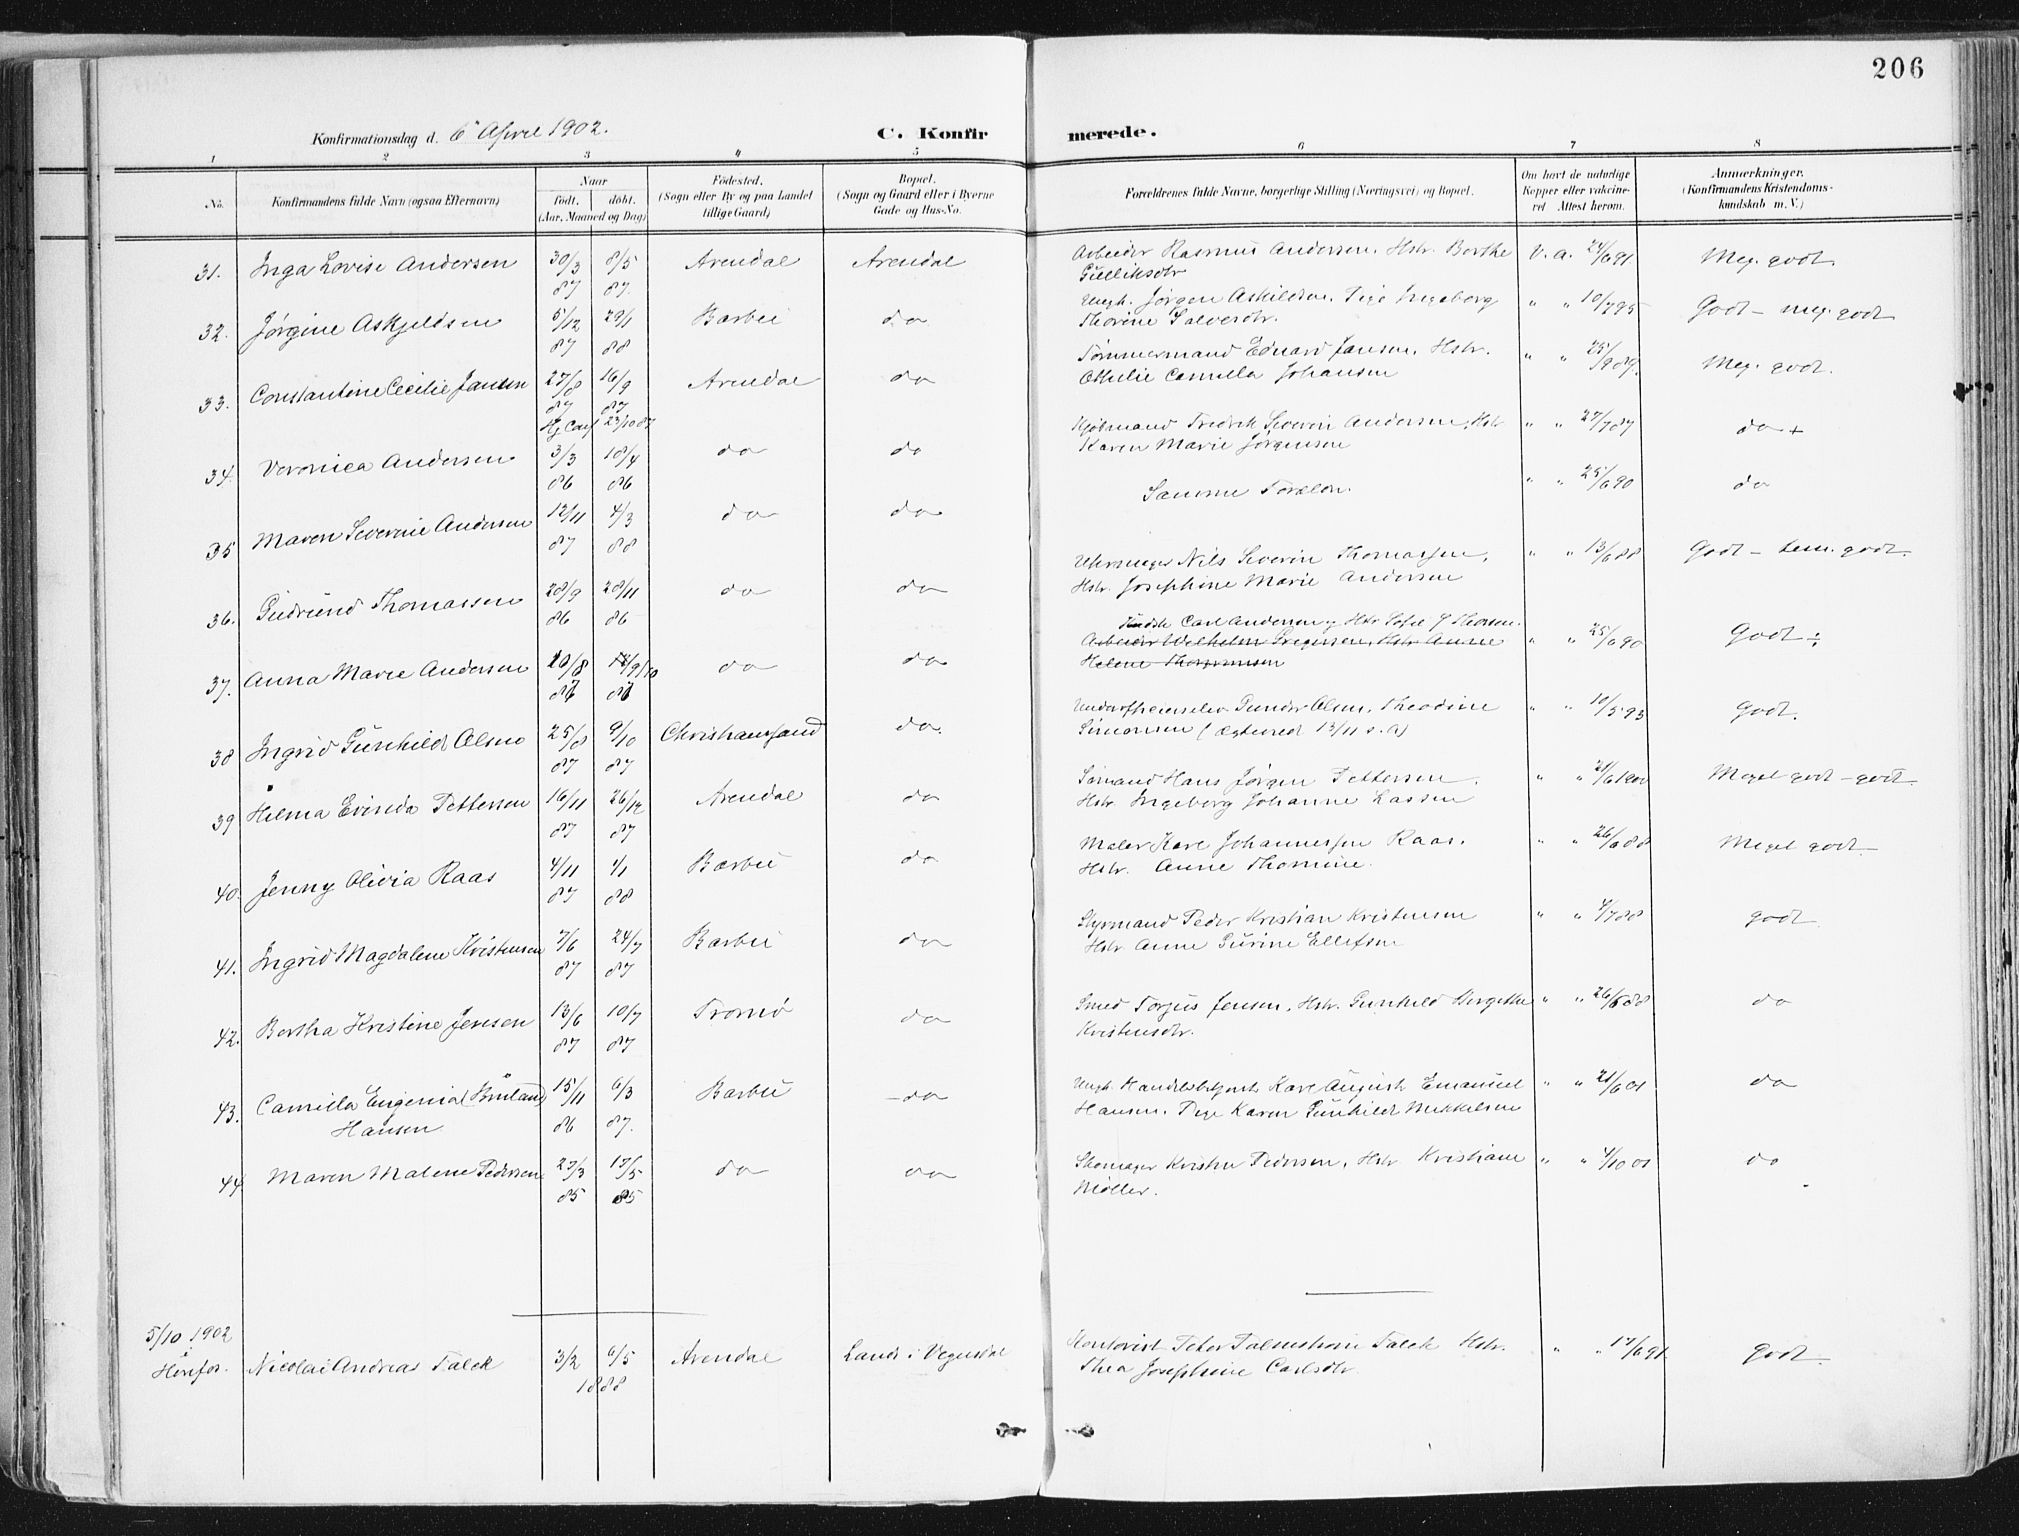 206
Konfirmationsdag d. 6' April 1902. C. Konfir merede.
1 2 3 4 5 6 7 8
No. Konfirmandens fulde Navn (ogsaa Efternavn) Naar født. døbt. (Aar, Maaned og Dag) Fødested. (Sogn eller By og paa Landet tillige Gaard) Bopæl. (Sogn og Gaard eller i Byerne Gade og Hus-No. Forældrenes fulde Navne, borgerlige Stilling (Næringsvei) og Bopæl. Om havt de naturlige Kopper eller vaccineret. Attest herom. Anmærkninger. (Konfirmandens Kristendomskundskab m. V.)
31. Inga Lovise Andersen 30/3 87 8/5 87. Arendal Arendal Arbeider Rasmus Andersen, Hstr. Berthe Gulliksdtr V. a. 24/6 91 Meg. godt.
32. Jørgine Askjeldsen 5/12 87 29/1 88 Barbu do Ungk. Jørgen Askildsen, Pige Ingeborg Thorine Salvesdtr. " " 10/7 95 Godt - meg. godt
33. Constantine Cecilie Jansen 27/8 87 16/9 87 Arendal do Tømmermand Eduard Jansen, Hstr. Othilie Camilla Johansen " " 25/9 89. Meg. godt.
23/10 87
34. Veronica Andersen 3/3 86 18/4 86 do do Kjøbmand Fredrik Severin Andersen, Hstr Karen Marie Jørgensen " " 27/7 87 do +
35 Maren Severine Andersen 12/11 87 4/3 88 do do Samme Forældre. " " 25/6 90 do
36. Gudrund Thomassen 28/9 86 28/11 86 do do Uhrmager Nils Severin Thomassen, Hstr. Josephine Marie Andersen " " 13/6 88 Godt - tem. godt.
37. Anna Marie Andersen 10/8 87 do do Carl Andersen, Hstr Arbeider Wilhelm Gregersen, Hstr Anne Helene " " 25/6 90 Godt ÷
38 Ingrid Gunhild Olsen 25/8 87 9/10 87 Christianssand do. Gunder Olsen, Theodine Simonsen (ægteviet 13/11 s. a) " " 10/5 93 Godt.
39 Hilma Evinda Pettersen 16/11 87 26/12 87 Arendal do Sømand Hans Jørgen Pettersen. Hstr. Ingeborg Johanne Lassen " " 21/6 1900 Meget godt - godt.
40. Jenny Olivia Raas 4/11 87 1/1 88 Barbu do Maler Karl Johannessen Raas. Hstr. Anne Thomine. " " 26/6 88 Meget godt
41. Ingrid Magdalene Kristensen 7/6 87 24/7 87 Barbu do Styrmand Peder Kristian Kristensen Hstr Anne Gurine Ellefsen " " 4/7 88 godt
42. Bertha Kristine Jensen 13/6 87 10/7 87 Tromø do Smed Torjus Jensen, Hstr. Gunhild Birgitte Kristensdtr. " " 26/6 88 do
43. Camilla Eugenia Hansen 15/11 86 6/3 87. Barbu do Ungk. Handelsbetjent Karl August Emanuel Hansen. Pige Karen Gunhild Mikkelsen " " 21/6 01 do
44 Maren Malene Pedersen 27/3 85 17/5 85 do do Skomager Kristen Pedersen, Hstr. Kristiane Møller. " " 4/10 01 do
5/10 1902 i Herefos. Nicolai Andreas Falck 3/2 6/5 1888 Arendal Lands i Vegusdal Kontorist Peter Falck Hstr. Thea Josephine Carlsdtr. " " 17/6 91 godt.